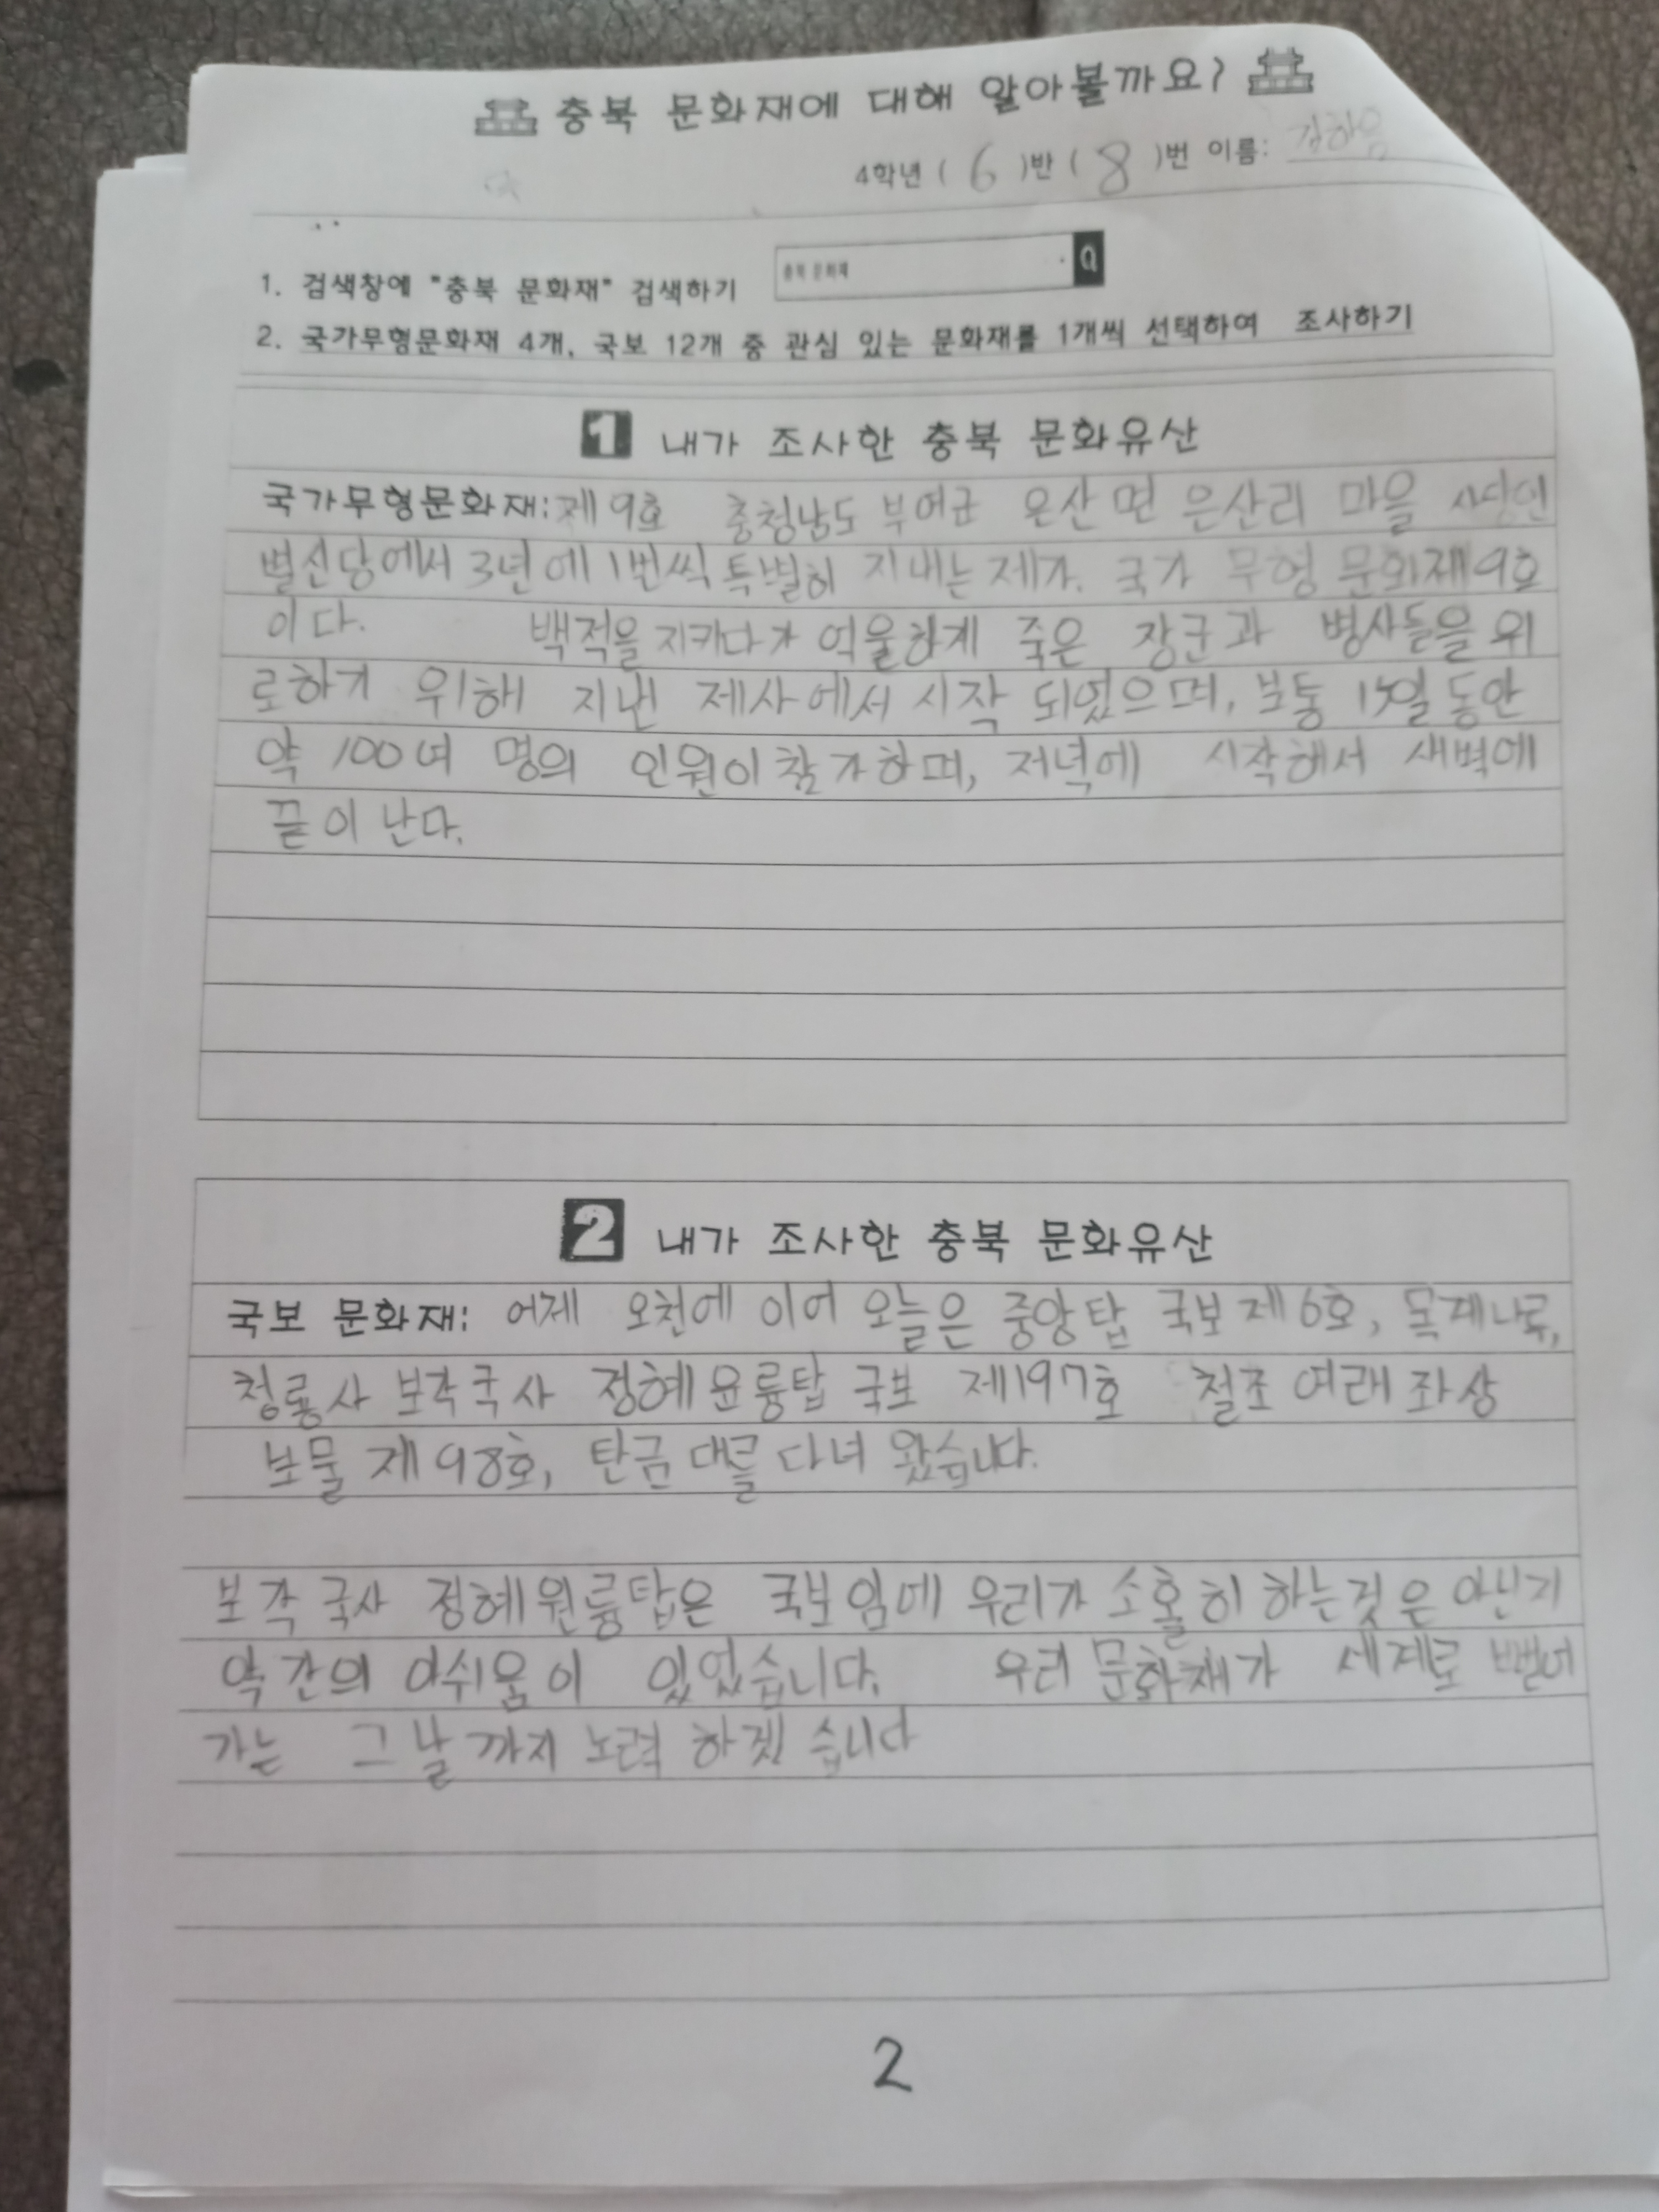 충북 문화재에 대해 알아볼까요?
4학년 ( 6 )반 ( 8 )번 이름:
1. 검색창에 "충북 문화재" 검색하기 충북 문화재
2. 국가무형문화재 4개, 국보 12개 중 관심 있는 문화재를 1개씩 선택하여 조사하기
1 내가 조사한 충북 문화유산
국가무형문화재: 제9호 충청남도 부여군 은산면 은산리 마을 사당인
별신당에서 3년에 1번씩 특별히 지내는 제가. 국가 무형 문화재 9호
이다. 백적을 지키다가 억울하게 죽은 장군과 병사들을 위
로하기 위해 지낸 제사에서 시작 되었으며, 보통 15일 동안
약 100여 명의 인원이 참가하며, 저녁에 시작해서 새벽에
끝이 난다.
2 내가 조사한 충북 문화유산
국보 문화재: 어제 오천에 이어 오늘은 중앙탑 국보 제6호, 목계나루,
청룡사 보각국사 정혜원륭탑 국보 제197호 철조 여래 좌상
보물 제98호, 탄금대를 다녀 왔습니다.
보각 국사 정혜원륭탑은 국보임에 우리가 소홀히 하는것은 아닌지
약간의 아쉬움이 있었습니다. 우리 문화재가 세계로 뻗어
가는 그날까지 노력 하겠습니다
2